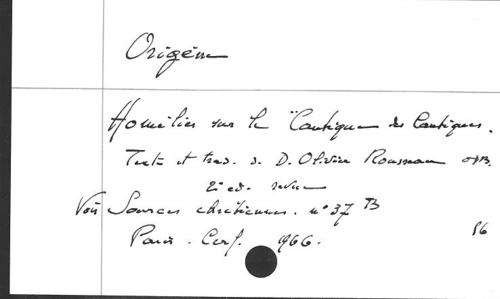 Origène
Homélies sur le "Cantique des Cantiques.
Texte et trad. de D. Olivier Rousseau OSB.
2e ed. revue
Voir Sources chrétiennes. n° 37 B
Paris. Cerf. 1966.